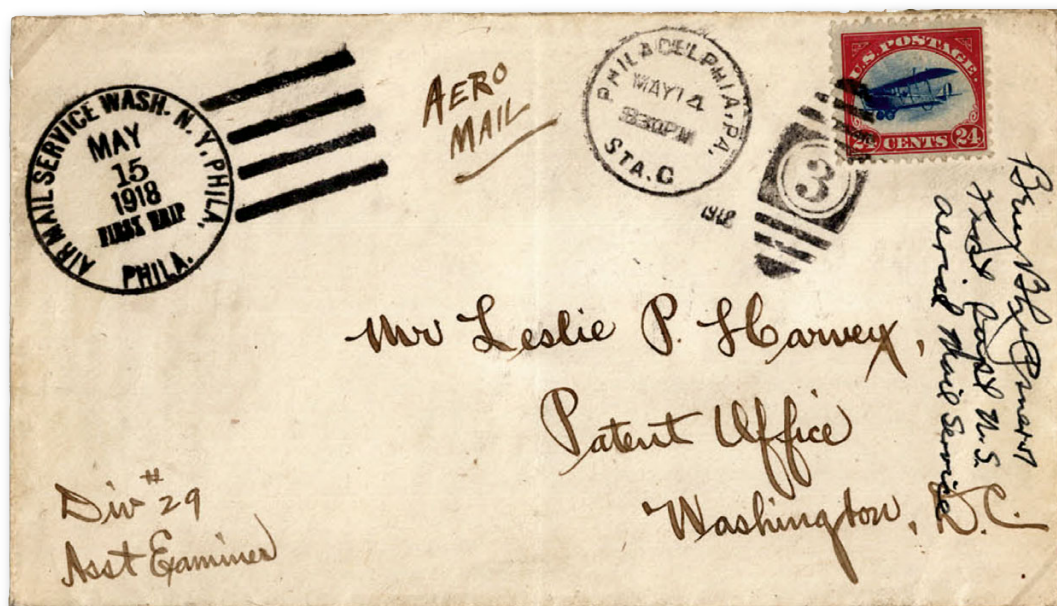 AIR MAIL SERVICE WASH. N.Y. PHILA.
MAY
15
1918
FIRST TRIP
PHILA.
AERO
MAIL
PHILADELPHIA, PA.
MAY 14
STA. C
1918
3
U.S. POSTAGE.
24 CENTS 24
Mr Leslie P. Harvey,
Patent Office
Washington, D.C.
Div #29
Asst Examiner
First. Supt U.S.
aerial Mail Service